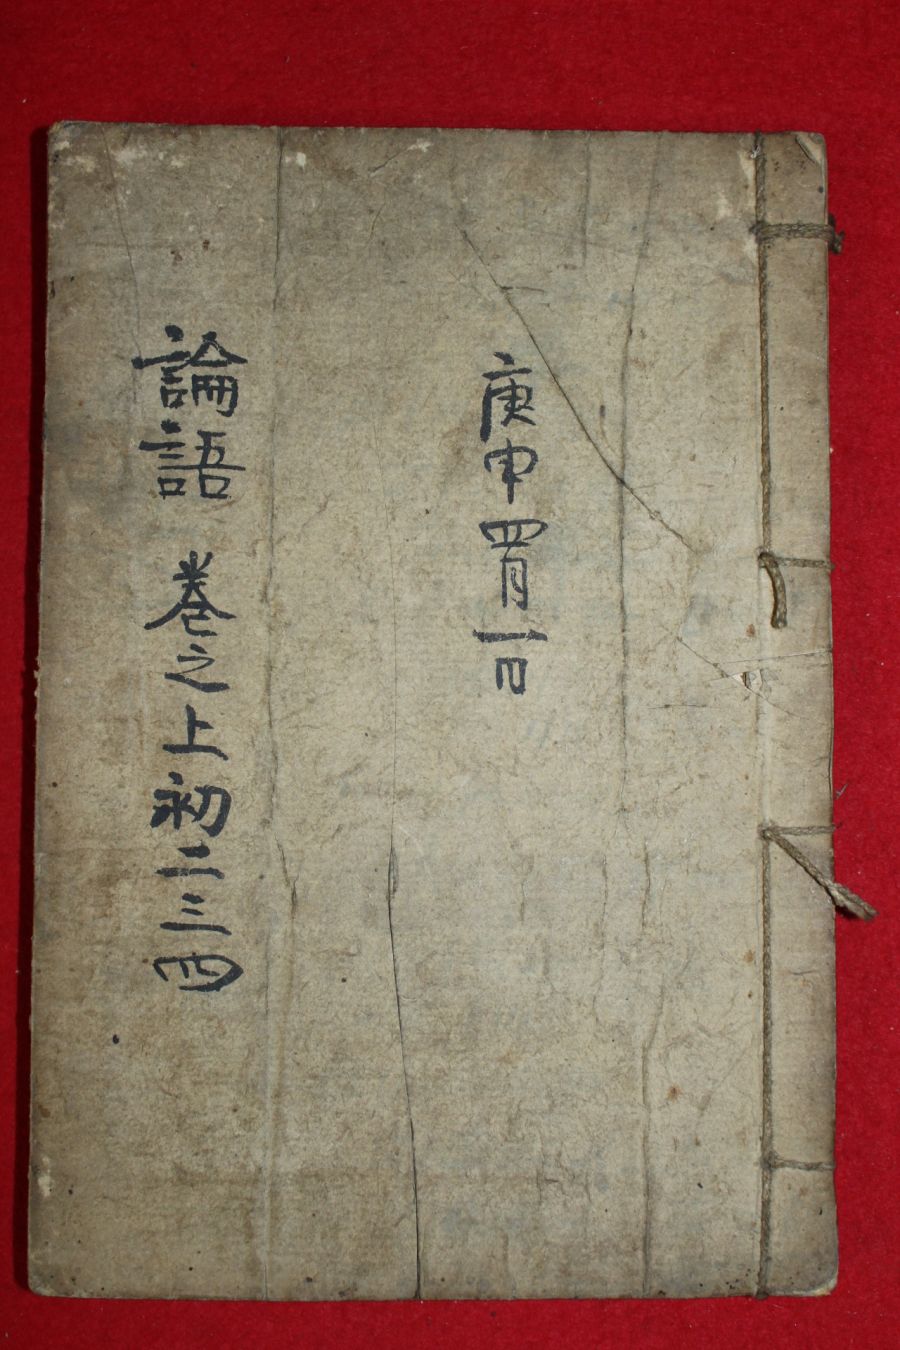 庚申四月一日
論語 卷之上初二三四